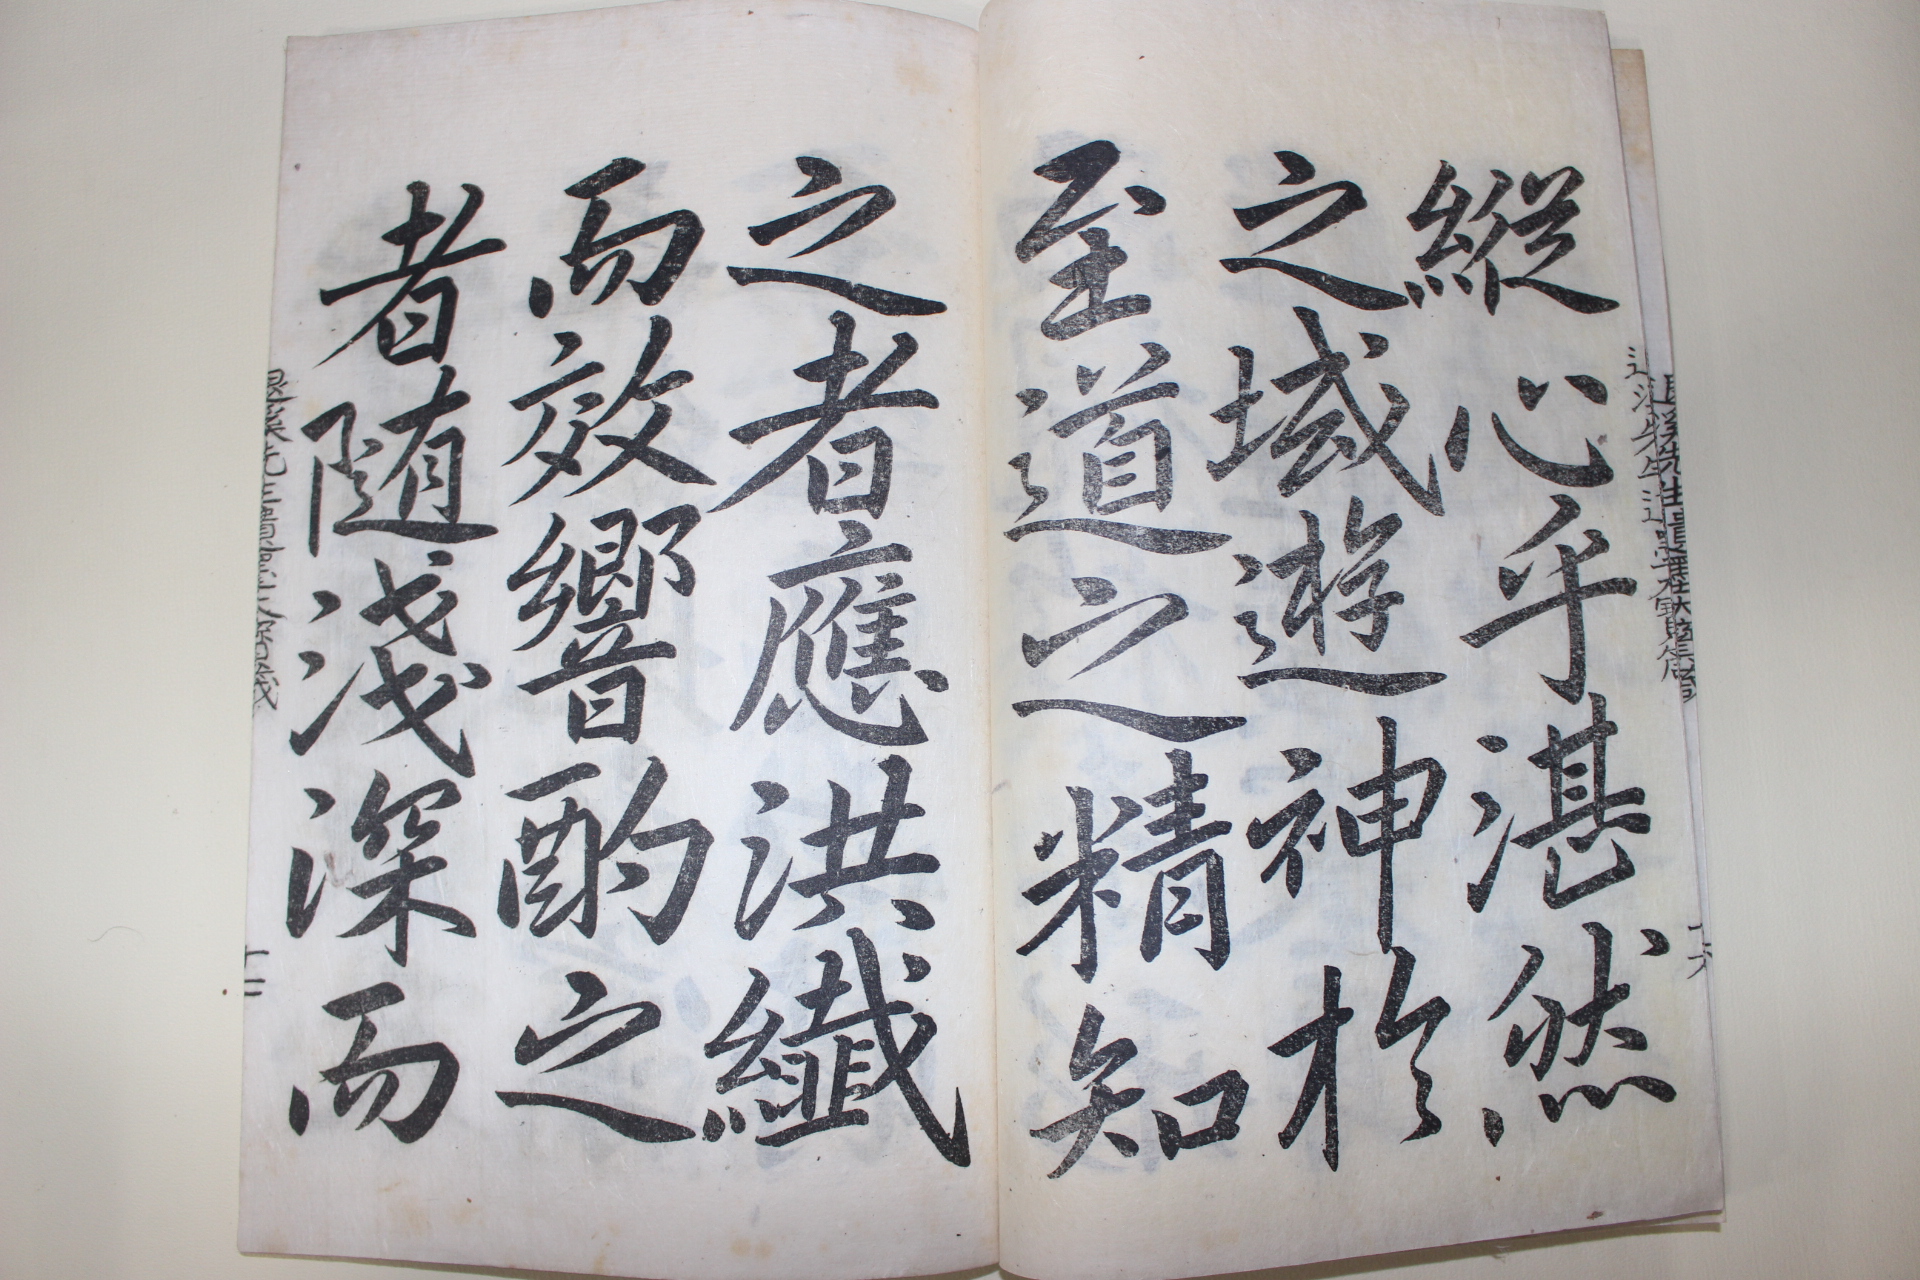 縦心乎湛然
之域遊神於
至道之精知
之者應洪纖
而效響酌之
者随浅深而
十二